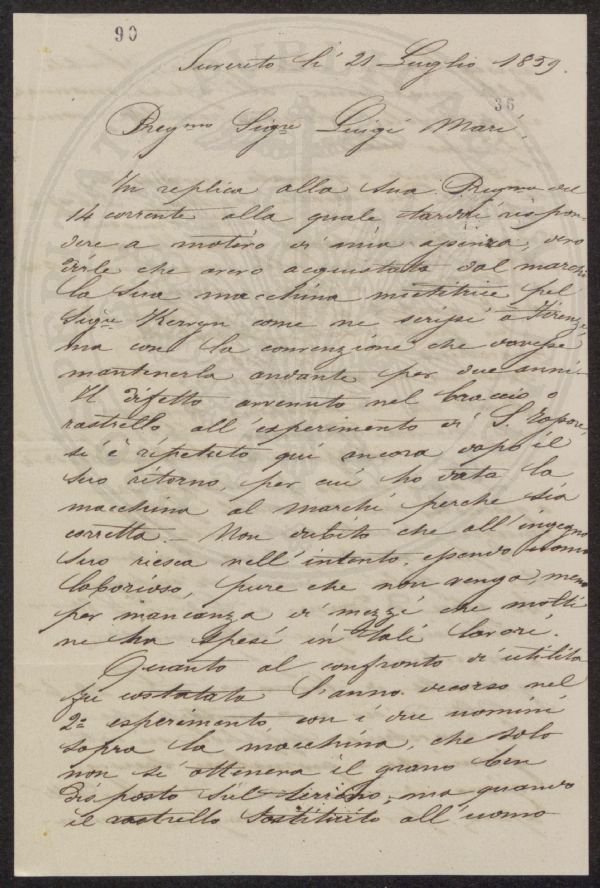 90
Suvereto li 21 Luglio 1859.
36
Pregmo Sigre Luigi Mari,
In replica alla sua Pregma del
14 corrente alla quale tardai rispon-
dere a motivo di mia assenza, devo
dirle che avevo acquistata dal Marchi
la sua macchina mietitrice pel
Sigre Kerwyn come ne scrissi a Firenze
ma con la convenzione che dovesse
mantenerla andante per due anni.
Il difetto avvenuto nel braccio o
rastrello all'esperimento di S.
si è ripetuto qui ancora dopo il
suo ritorno, per cui ho data la
macchina al Marchi perche sia
corretta. - Non dubito che all'ingegno
suo riesca nell'intento, essendo uomo
laborioso, pure che non venga meno
per mancanza di mezzi che molti
ne ha spesi in tali lavori.
Quanto al confronto di utilità
fu costatata l'anno decorso nel
2o esperimento con i due uomini
sopra la macchina, che solo
non si otteneva il grano ben
disposto sul terreno, ma quando
il rastrello sostituito all'uomo